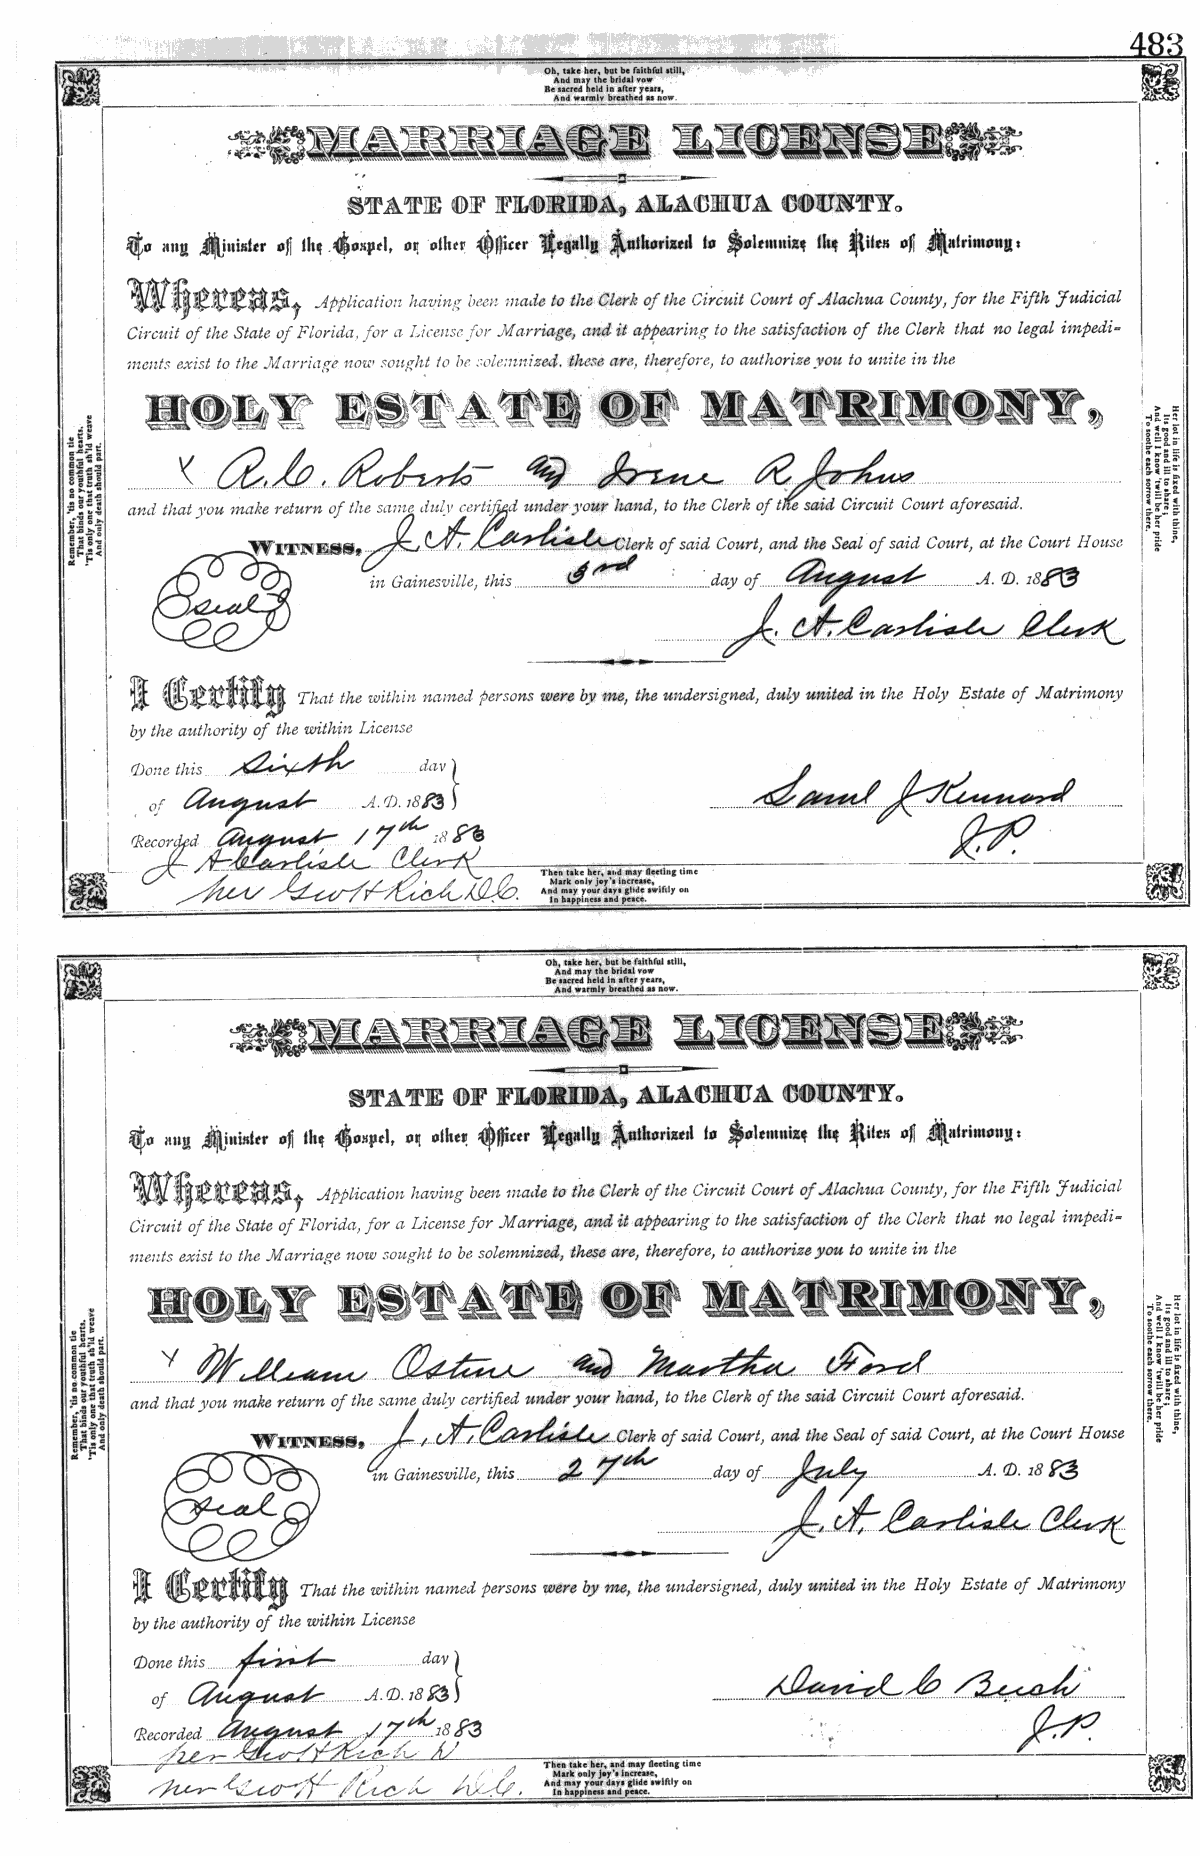 483
Oh, take her, but be faithful still,
And may the bridal vow
Be sacred held in after years,
And warmly breathed as now.
MARRIAGE LICENSE
STATE OF FLORIDA, ALACHUA COUNTY.
To any Minister of the Gospel, or other Officer Legally Authorized to Solemnize the Rites of Matrimony:
Whereas, Application having been made to the Clerk of the Circuit Court of Alachua County, for the Fifth Judicial
Circuit of the State of Florida, for a License for Marriage, and it appearing to the satisfaction of the Clerk that no legal impedi-
ments exist to the Marriage now sought to be solemnized, these are, therefore, to authorize you to unite in the
HOLY ESTATE OF MATRIMONY,
x R. C. Roberts and Irene R Johns
and that you make return of the same duly certified under your hand, to the Clerk of the said Circuit Court aforesaid.
WITNESS, J. A. Carlisle Clerk of said Court, and the Seal of said Court, at the Court House
seal
in Gainesville, this 3rd day of August A. D. 1883
J. A. Carlisle Clerk
I Certify That the within named persons were by me, the undersigned, duly united in the Holy Estate of Matrimony
by the authority of the within License
Done this Sixth day
of August A.D. 1883
Saml J Kennard
J.P.
Recorded August 17th 1883
J A Carlisle Clerk
per Geo H Rich D.C.
Then take her, and may fleeting time
Mark only joy's increase,
And may your days glide swiftly on
In happiness and peace.
Remember, 'tis no common tie
That binds our youthful hearts,
'Tis only one that truth sh'ld weave
And only death should part.
Her lot in life is fixed with thine,
Its good and ill to share;
And well I know 'twill be her pride
To soothe each sorrow there.
Oh, take her, but be faithful still,
And may the bridal vow
Be sacred held in after years,
And warmly breathed as now.
MARRIAGE LICENSE
STATE OF FLORIDA, ALACHUA COUNTY.
To any Minister of the Gospel, or other Officer Legally Authorized to Solemnize the Rites of Matrimony:
Whereas, Application having been made to the Clerk of the Circuit Court of Alachua County, for the Fifth Judicial
Circuit of the State of Florida, for a License for Marriage, and it appearing to the satisfaction of the Clerk that no legal impedi-
ments exist to the Marriage now sought to be solemnized, these are, therefore, to authorize you to unite in the
HOLY ESTATE OF MATRIMONY,
x William Ostine and Martha Ford
and that you make return of the same duly certified under your hand, to the Clerk of the said Circuit Court aforesaid.
WITNESS, J. A. Carlisle Clerk of said Court, and the Seal of said Court, at the Court House
seal
in Gainesville, this 27th day of July A. D. 1883
J. A. Carlisle Clerk
I Certify That the within named persons were by me, the undersigned, duly united in the Holy Estate of Matrimony
by the authority of the within License
Done this first day
of August A.D. 1883
David C
J.P.
Recorded August 17th 1883
per Geo H Rich D
per Geo H Rich D.C.
Then take her, and may fleeting time
Mark only joy's increase,
And may your days glide swiftly on
In happiness and peace.
Remember, 'tis no common tie
That binds our youthful hearts,
'Tis only one that truth sh'ld weave
And only death should part.
Her lot in life is fixed with thine,
Its good and ill to share;
And well I know 'twill be her pride
To soothe each sorrow there.